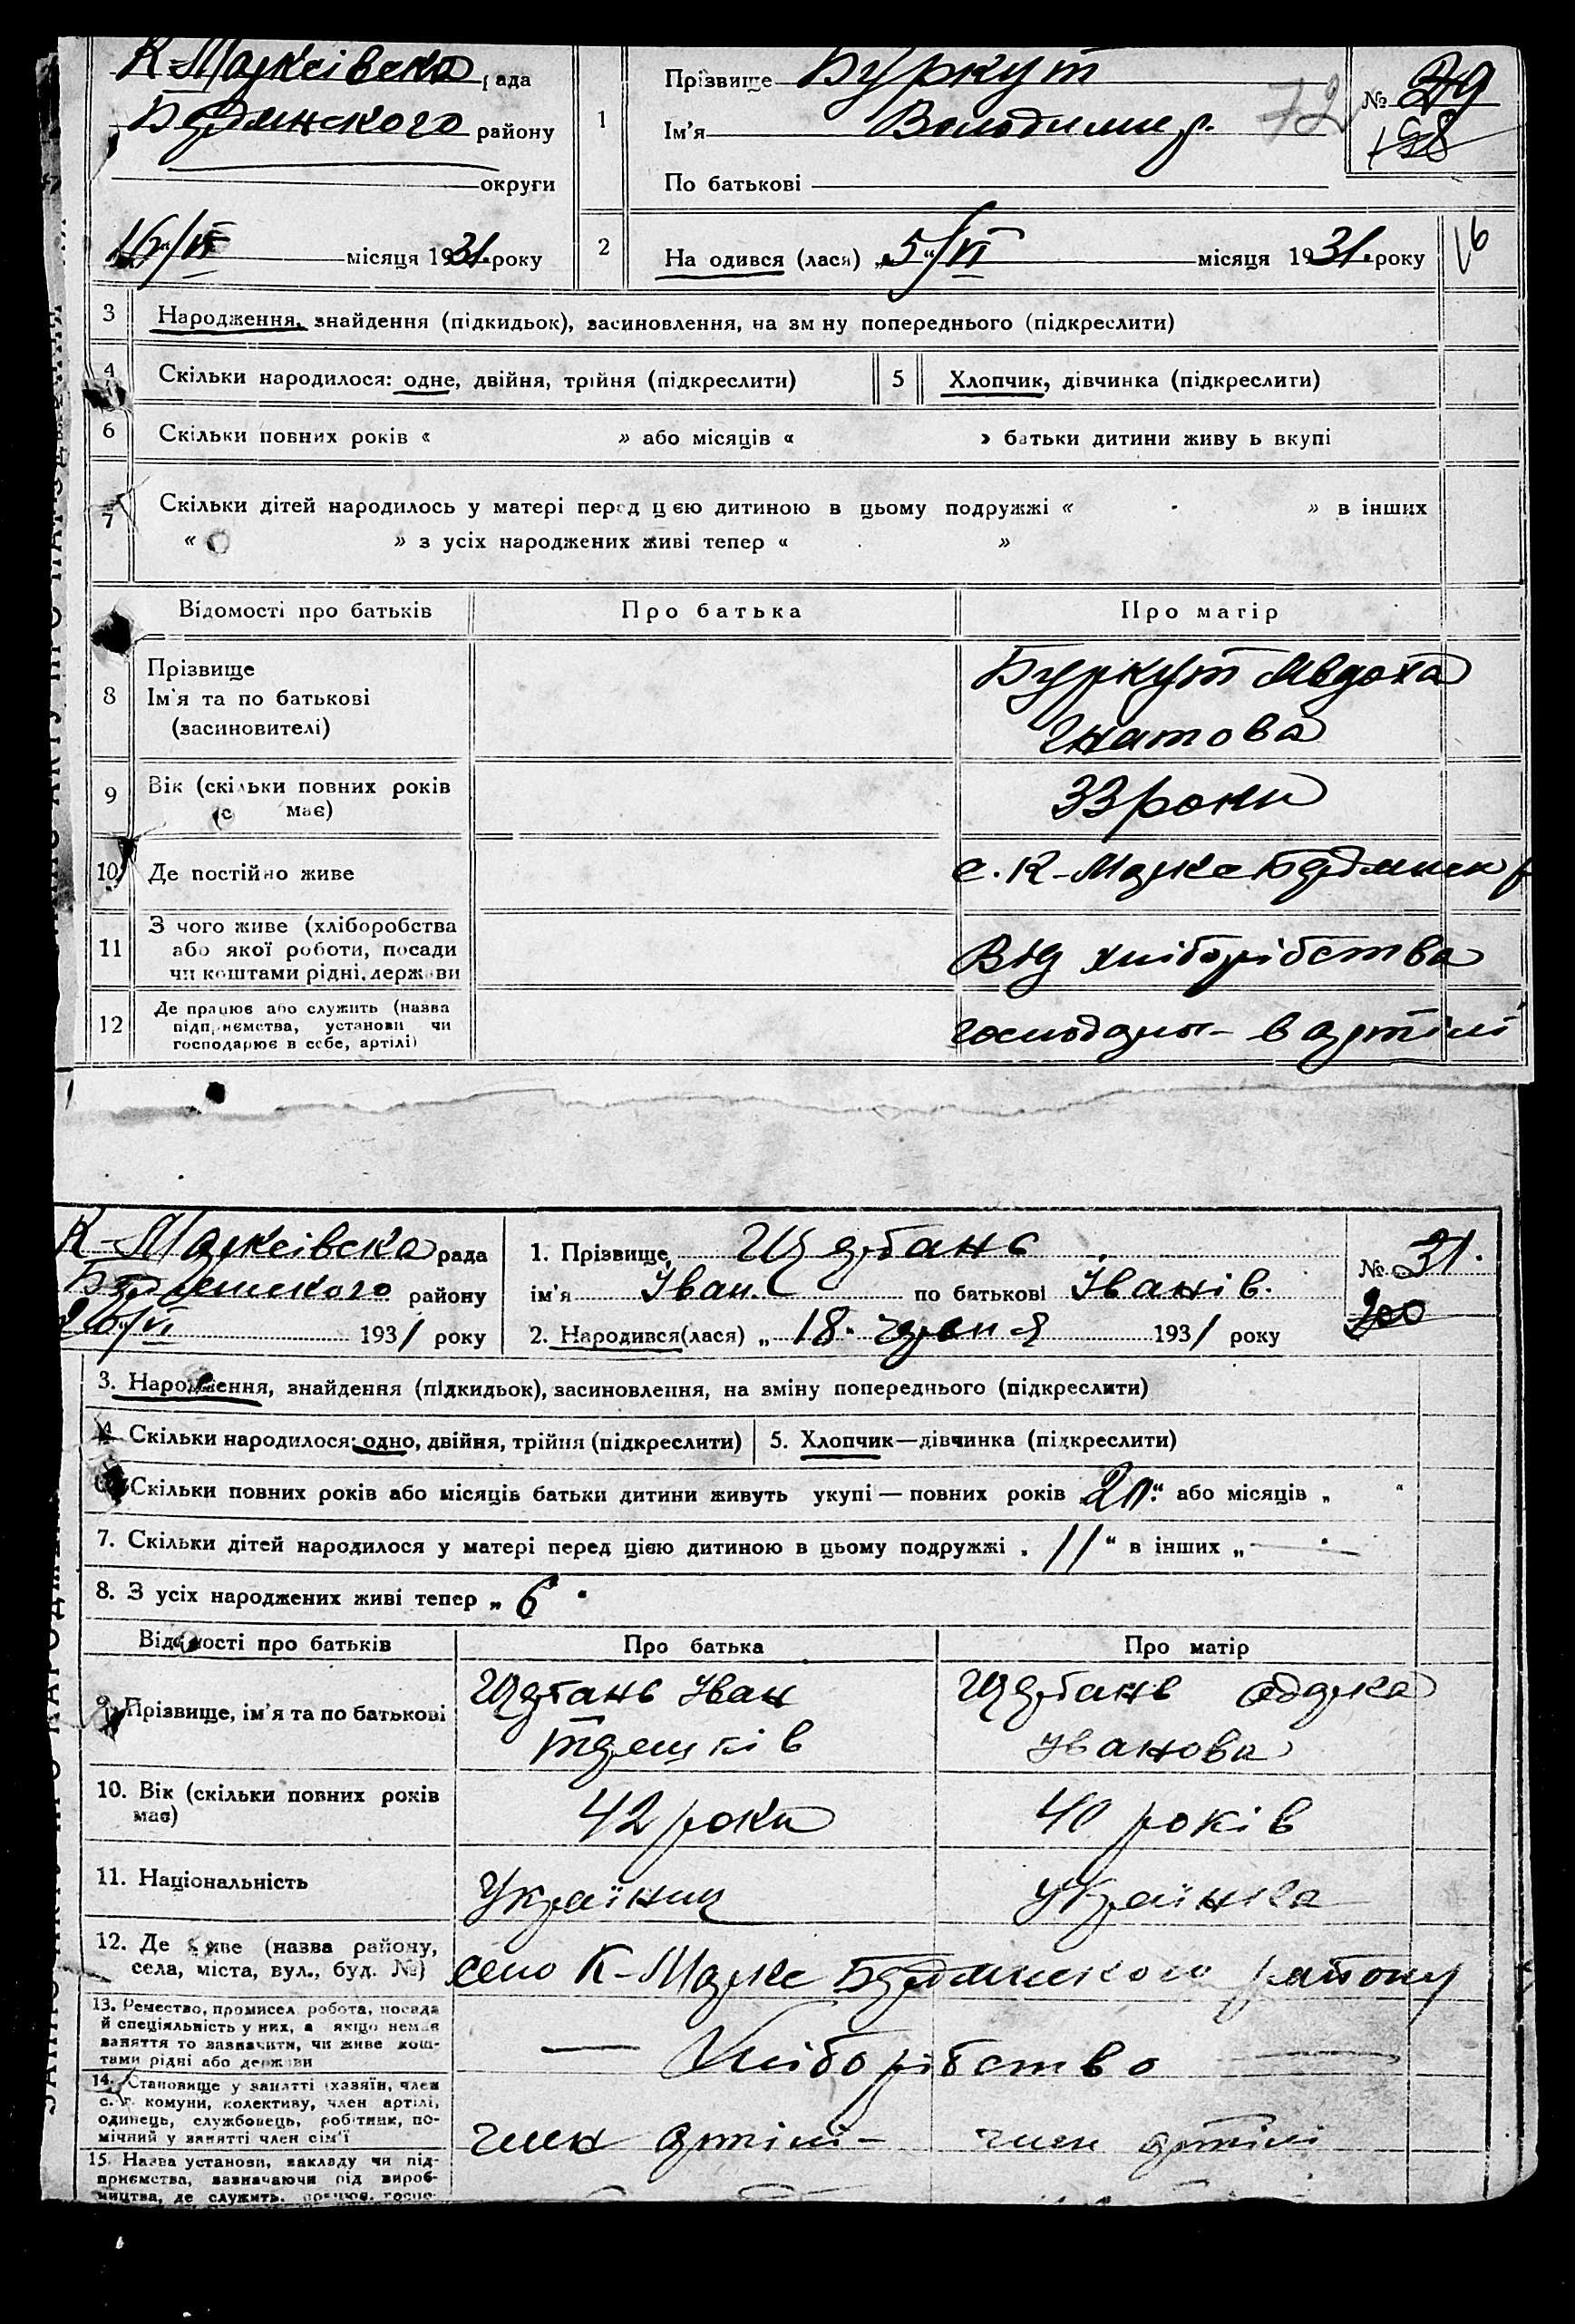 К-Марксівська рада
Бердянського району
округи
16/VI місяця 1931 року
1 Прізвище Буркут
Ім'я Володимир.
По батькові
72
№ 29
198
2 На одився (лася) „5“/VI місяця 1931. року
16
3 Народження, знайдення (підкидьок), засиновлення, на зм ну попереднього (підкреслити)
4 Скільки народилося: одне, двійня, трійня (підкреслити) 5 Хлопчик, дівчинка (підкреслити)
6 Скільки повних років « » або місяців « » батьки дитини живу ь вкупі
7 Скільки дітей народилось у матері перед цією дитиною в цьому подружжі « » в інших
« » з усіх народжених живі тепер « »
Відомості про батьків Про батька Про матір
8 Прізвище
Ім'я та по батькові
(засиновителі)
Буркут Явдоха
Гнатова
9 Вік (скільки повних років
має)
33 роки
10 Де постійно живе
с. К-Маркс Бердянськ р
11 З чого живе (хліборобства
або якої роботи, посади
чи коштами рідні, держави
Від хліборібства
12 Де працює або служить (назва
підприємства, установи чи
господарює в себе, артілі)
господарює - в артілі
К-Марксівська рада
Бердянського району
20/VI 1931 року
1. Прізвище Щербань
ім'я Іван. по батькові Іванів.
2. Народився(лася) „ 18 “ червня 1931 року
№ 31.
200
3. Народження, знайдення (підкидьок), засиновлення, на зміну попереднього (підкреслити)
4 Скільки народилося: одно, двійня, трійня (підкреслити) 5. Хлопчик—дівчинка (підкреслити)
Скільки повних років або місяців батьки дитини живуть укупі — повних років 20 “ або місяців „ “
7. Скільки дітей народилося у матері перед цією дитиною в цьому подружжі „ 11 “ в інших „ —
8. З усіх народжених живі тепер „ 6 “
Відомості про батьків Про батька Про матір
9. Прізвище, ім'я та по батькові
Щербань Іван Щербань Одарка
Іванова
10. Вік (скільки повних років
має)
42 роки 40 років
11. Національність
Українець Українка
12. Де живе (назва району,
села, міста, вул., буд. №)
село К-Маркс Бердянського району
13. Ремество, промисел робота, посада
й спеціяльність у них, а якщо немає
заняття то зазначити, чи живе кош-
тами рідні або держави
— Хліборібство —
14. Становище у занятті (хазяїн, член
с.-г. комуни, колективу, член артілі,
одинець, службовець, робітник, по-
мічний у занятті член сім'ї
член артілі - член артілі
15. Назва установи, закладу чи під-
приємства, зазначаючи рід вироб-
ництва, де служить, працює, госпо-